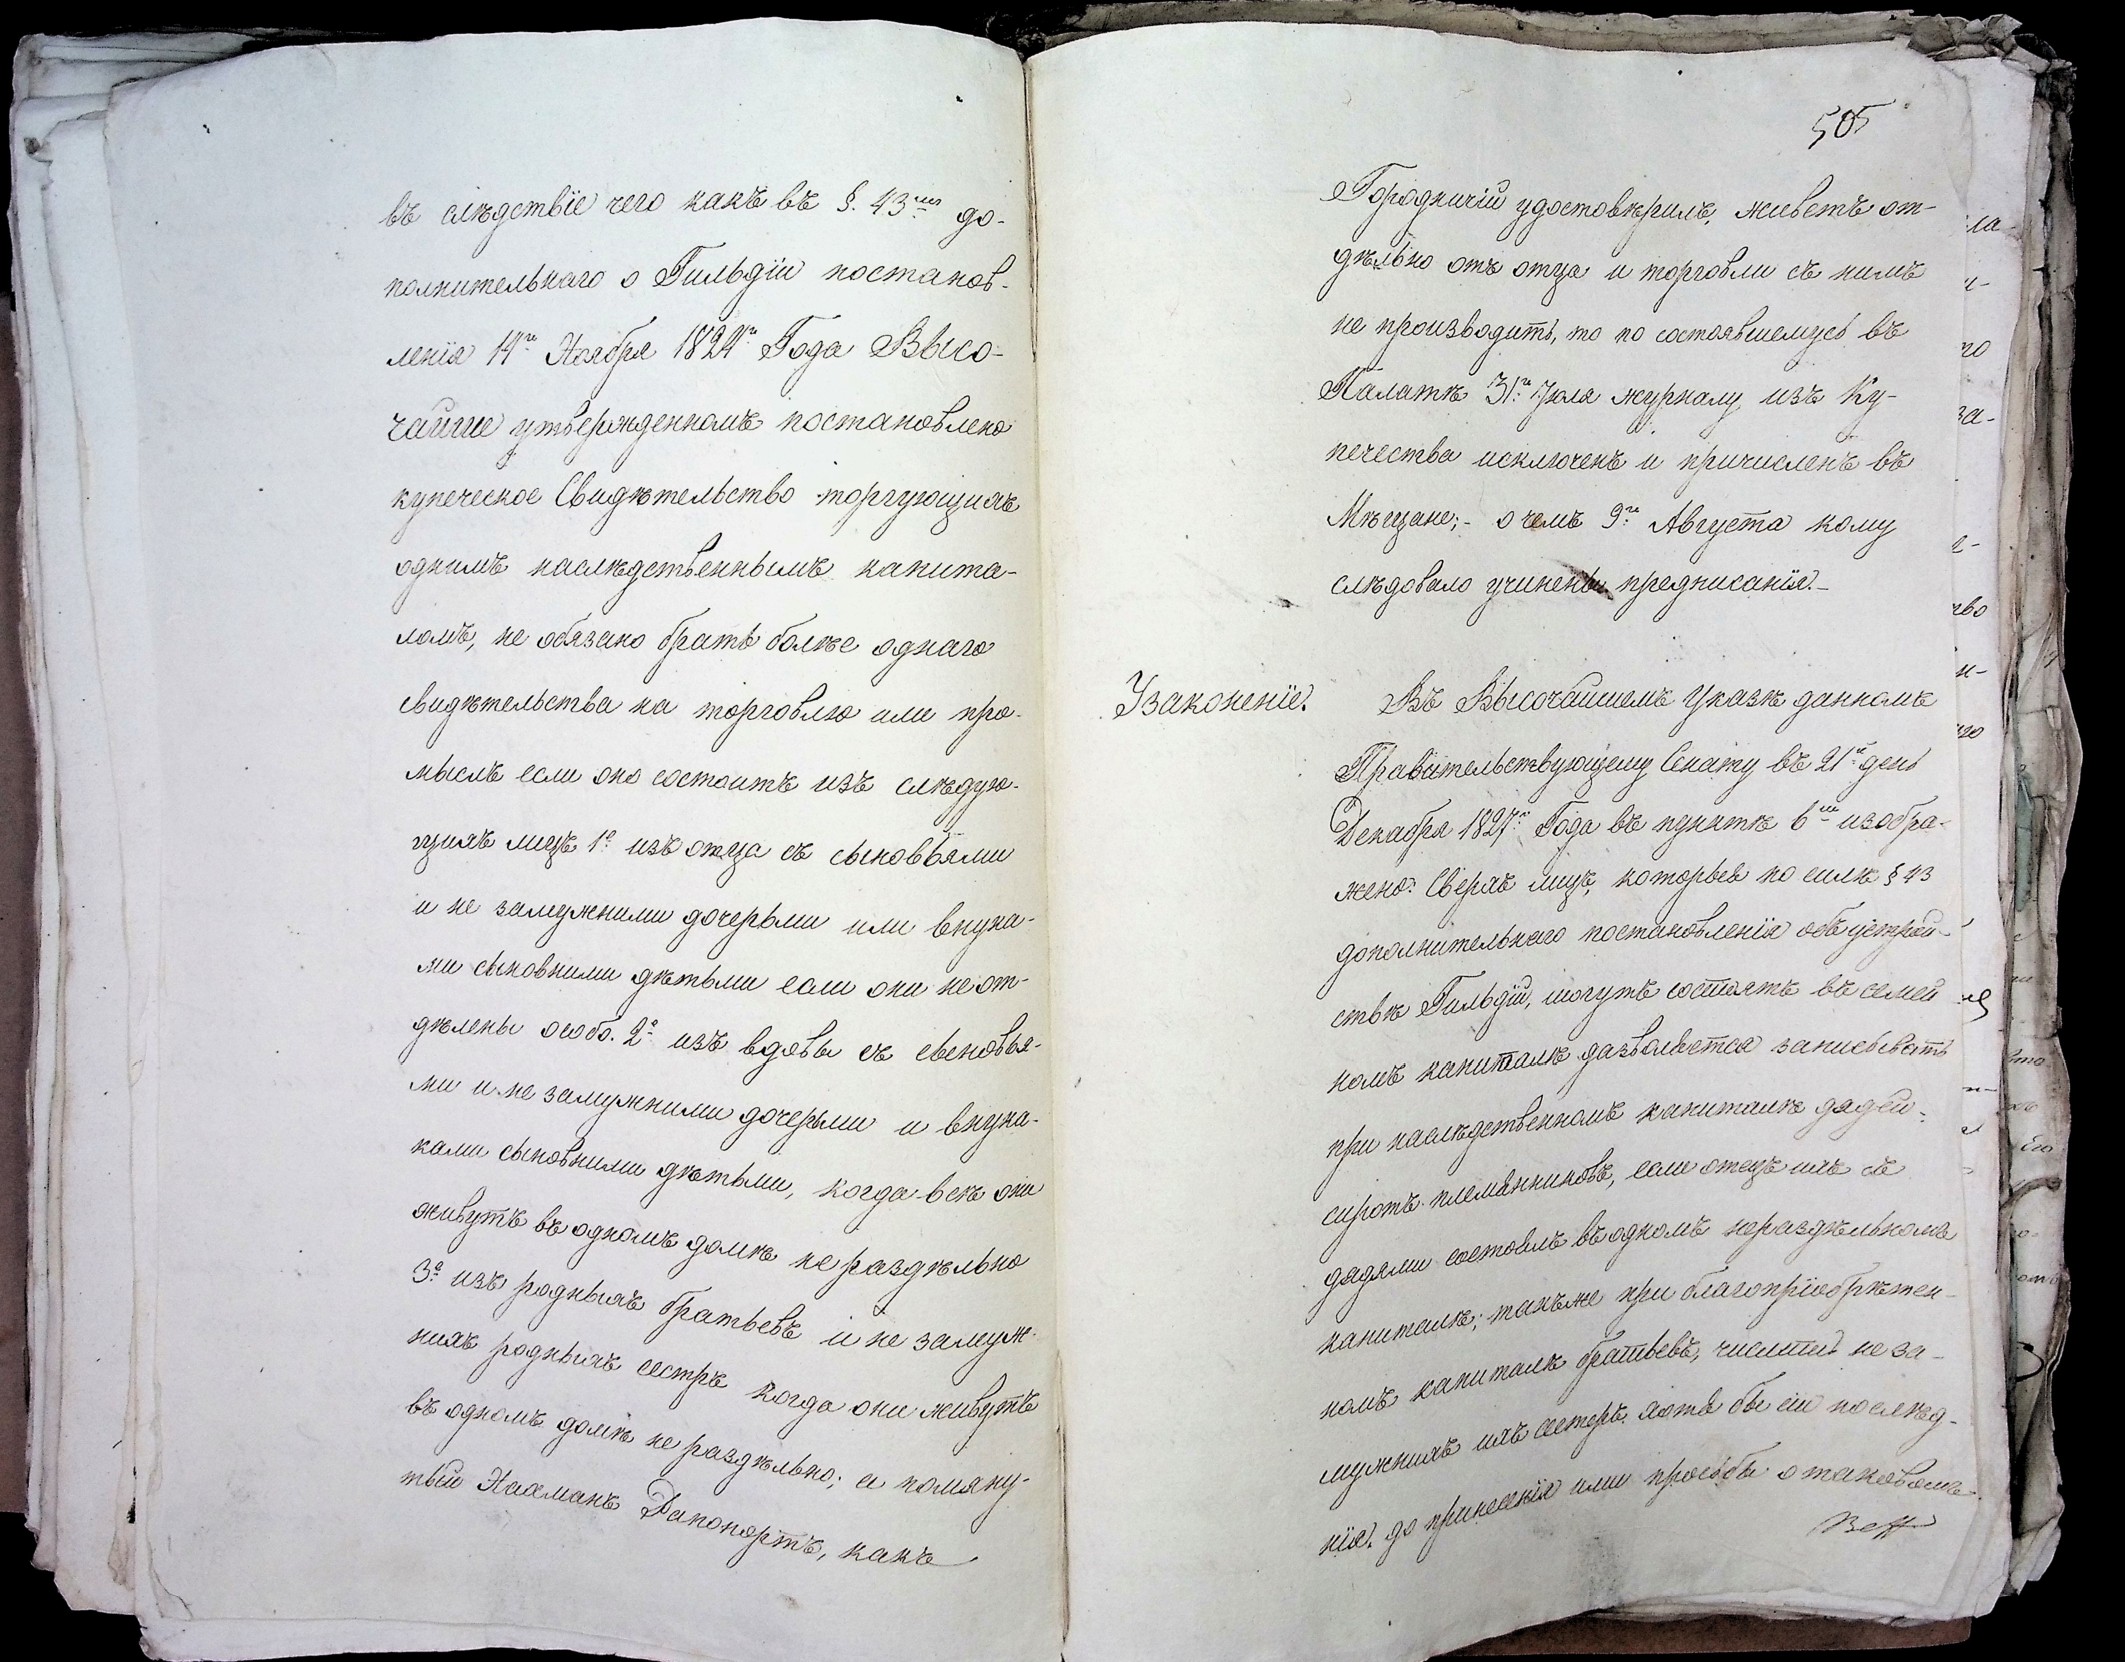 въ слѣдствіе чего какъ въ §. 43мъ до-
полнительнаго о Гильдіи постанов-
ленія 14го Ноября 1824го Года Высо-
чайше утвержденномъ постановлено
купеческое Свидѣтельство торгующихъ
однимъ наслѣдственнымъ капита-
ломъ, не обязано брать болѣе однаго
свидѣтельства на торговлю или про-
мыслъ если оно состоитъ изъ слѣдую-
щихъ лицъ 1е изъ отца съ сыновьями
и не замужними дочерьми или внука-
ми сыновними дѣтьми если они не от-
дѣлены особо. 2е изъ вдовы съ сыновья-
ми и не замужними дочерьми и внука-
ками сыновними дѣтьми, когда всѣ они
живутъ въ одномъ домѣ не раздѣльно
3е изъ родныхъ братьевъ и не замуж-
нихъ родныхъ сестръ когда они живутъ
въ одномъ домѣ не раздѣльно; а помяну-
тый Нахманъ Рапопортъ, какъ
505
Городничій удостовѣрилъ, живетъ от-
дѣльно отъ отца и торговли съ нимъ
не производитъ, то по состоявшемусь въ
Палатѣ 31го Іюля журналу изъ Ку-
печества исключенъ и причисленъ въ
Мѣщане; - о чемъ 9го Августа кому
слѣдовало учинены предписанія. -
Узаконеніе.
Въ Высочайшемъ Указѣ данномъ
Правительствующему Сенату въ 21й день
Декабря 1827го Года въ пунктѣ 6мъ изобра-
жено: Сверхъ лицъ, которыя по силѣ § 43
дополнительнаго постановленія объ устрой-
ствѣ Гильдій, могутъ состоять въ семей
номъ капиталѣ дозволяется записывать
при наслѣдственномъ капиталѣ дядей:
сиротъ племянниковъ, если отецъ ихъ съ
дядями состоялъ въ одномъ нераздѣльномъ
капиталѣ; такъже при благопріобрѣтен-
номъ капиталѣ братьевъ, числить не за-
мужнихъ ихъ сестеръ хотя бы сіи послѣд-
нія до принесенія ими просьбы о таковомъ